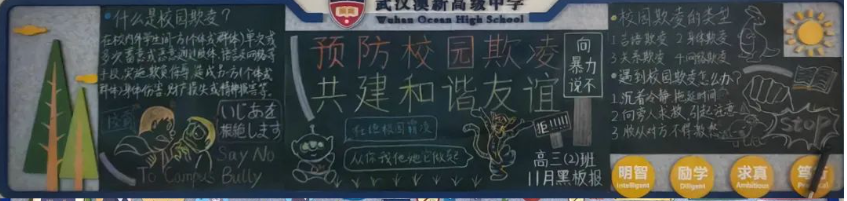 武汉澳新高级中学
Wuhan Ocean High School
什么是校园欺凌?
在校内外学生间一方(个体或群体)单次或
多次蓄意或恶意通过肢体、语言及网络等
手段实施欺负侮辱造成另一方(个体或
群体)身体伤害、财产损失或精神损害等。
いじめを
拒絶します
Say No
To Campus Bully
预防校园欺凌
共建和谐友谊
向
暴力
说不
杜绝校园霸凌
从你我他她它做起
拒!!!!
高三(2)班
11月黑板报
校园欺凌的类型
1 言语欺凌 2 身体欺凌
3 关系欺凌 4 网络欺凌
遇到校园欺凌怎么办?
1 沉着冷静 拖延时间
2 向旁人求救,引起注意
Stop
明智
Intelligent
励学
Diligent
求真
Ambitious
笃